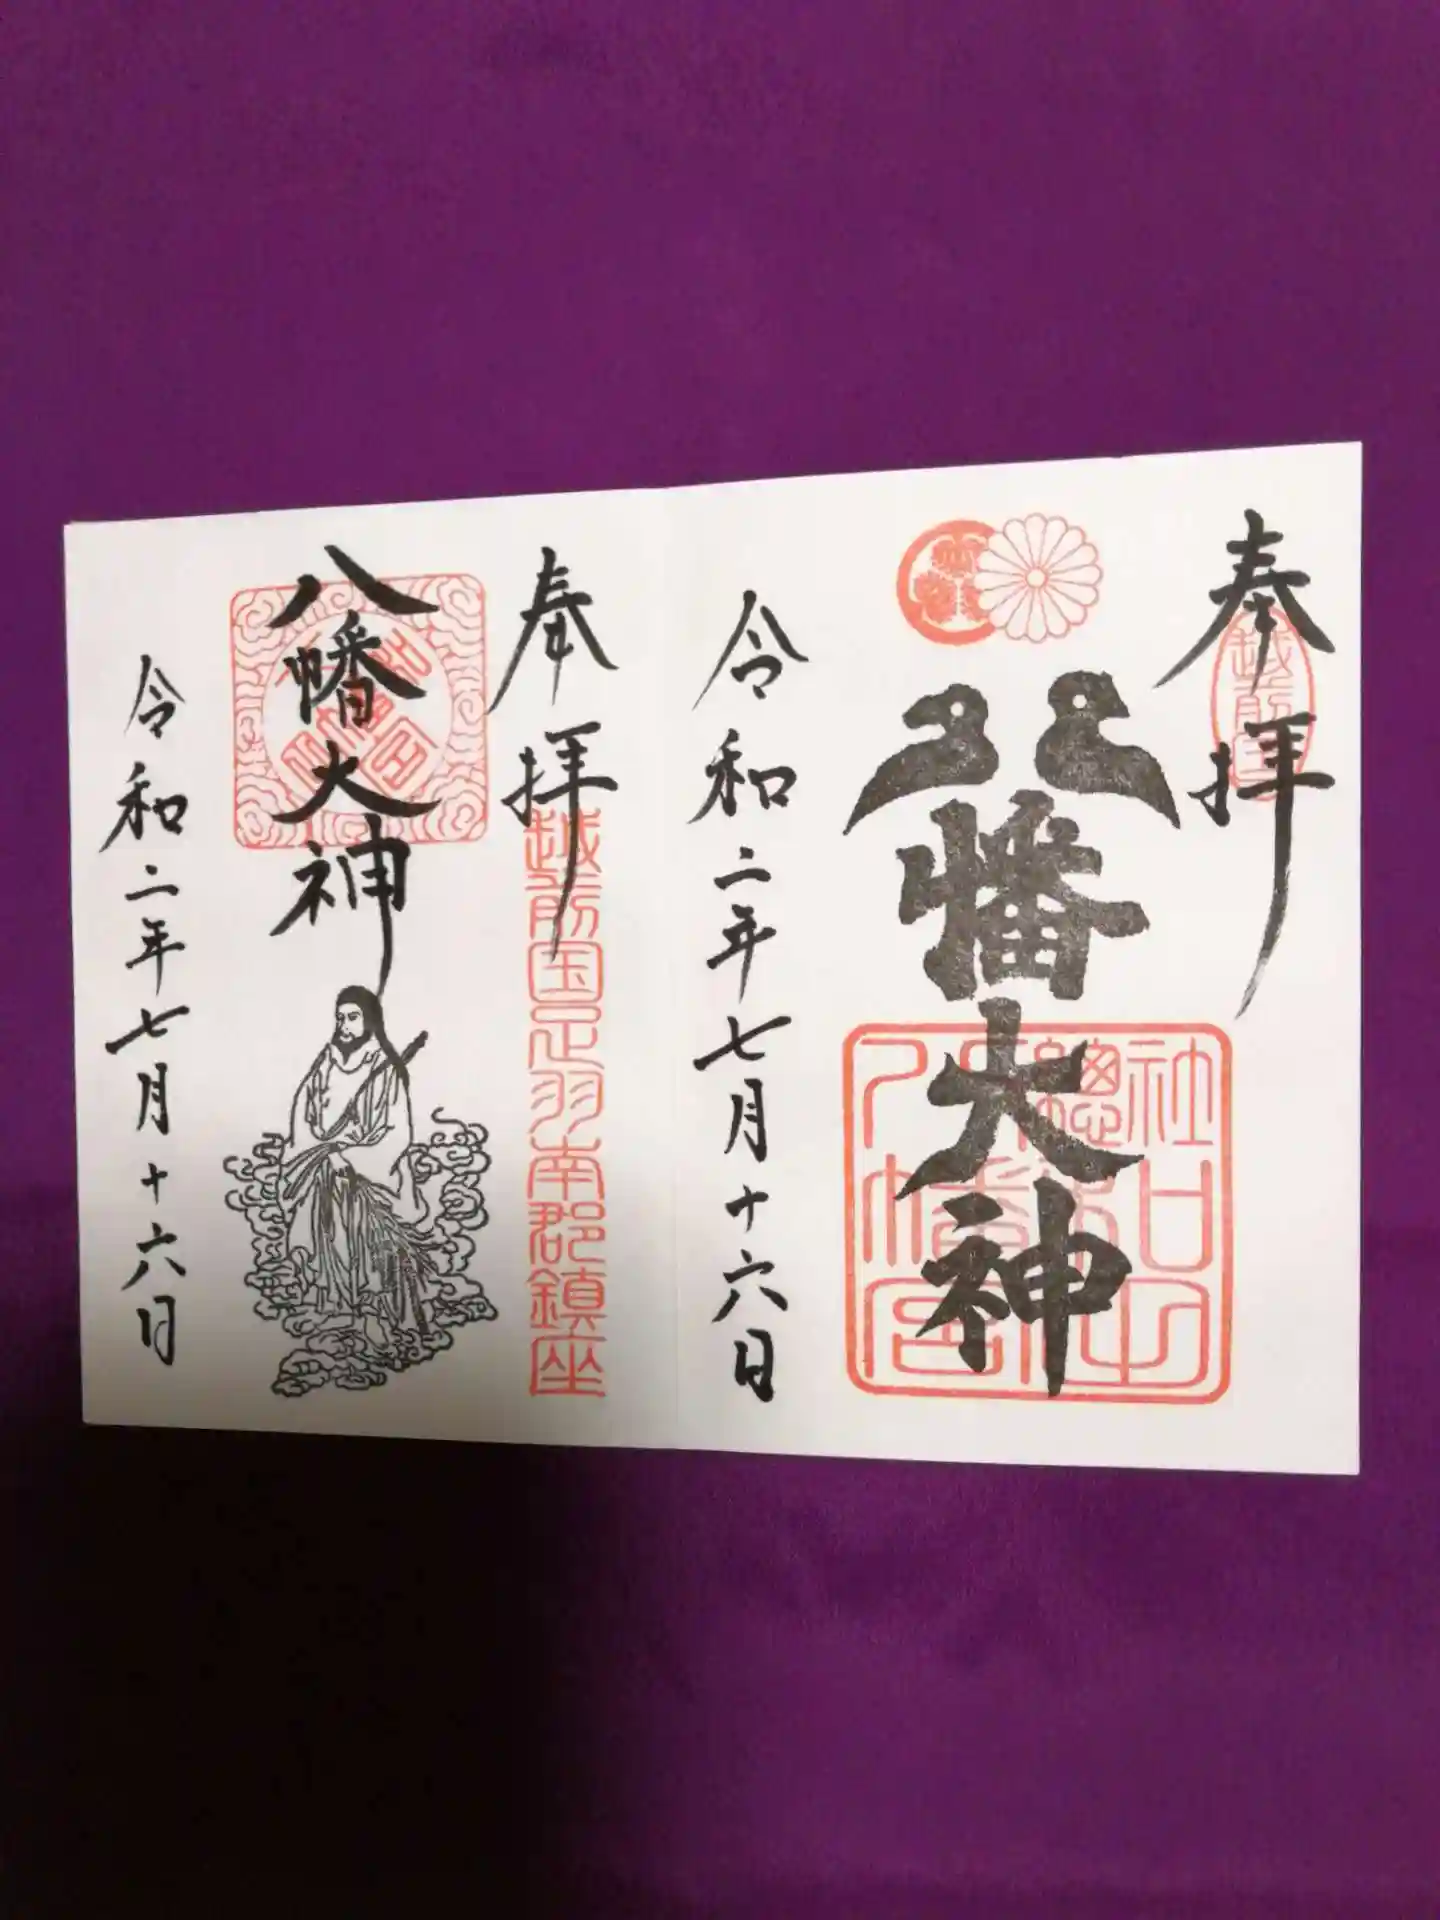 奉拝
越前国
八幡大神
令和二年七月十六日
奉拝
越前国丹羽南郡鎮座
八幡大神
令和二年七月十六日